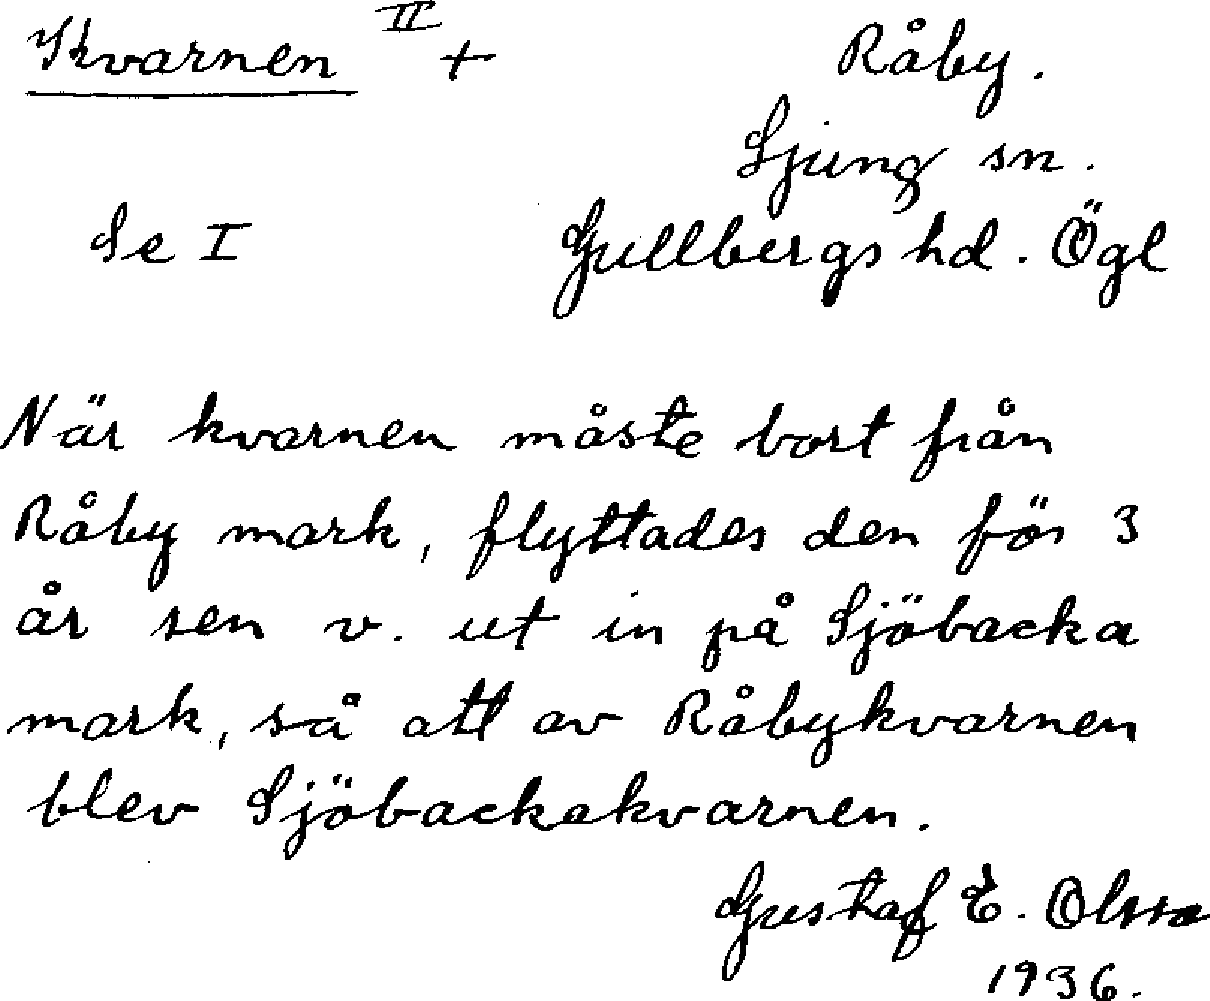 Kvarnen II +
Råby.
Ljung sn.
Se I
Gullbergs hd. Ögl
När kvarnen måste bort från
Råby mark, flyttades den för 3
år sen v. ut in på Sjöbacka
mark, så att av Råbykvarnen
blev Sjöbackakvarnen.
Gustaf E. Olsso
1936.